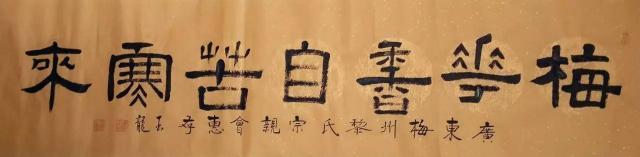 梅花香自苦寒來
廣東梅州黎氏宗親會惠存 玉龍